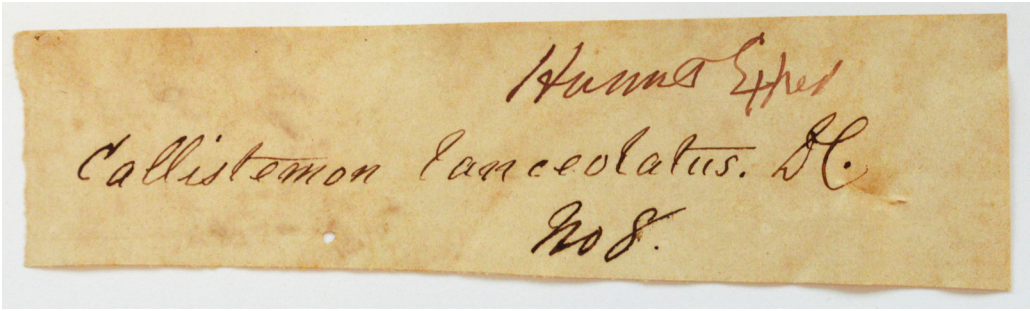 Hann's Exped
Callistemon lanceolatus. DC.
No 8.